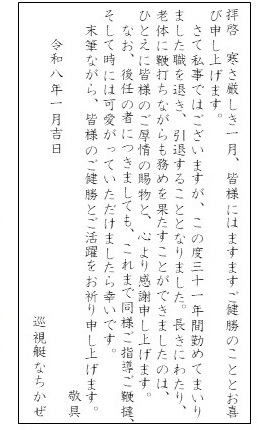 拝啓　寒さ厳しき一月、皆様にはますますご健勝のこととお喜
び申し上げます。
　さて私事ではございますが、この度三十一年間勤めてまいり
ました職を退き、引退することとなりました。長きにわたり、
老体に鞭打ちながらも務めを果たすことができましたのは、
ひとえに皆様のご厚情の賜物と、心より感謝申し上げます。
　なお、後任の者につきましても、これまで同様ご指導ご鞭撻、
そして時には可愛がっていただけましたら幸いです。
　末筆ながら、皆様のご健勝とご活躍をお祈り申し上げます。
敬具
令和八年一月吉日
巡視艇なちかぜ